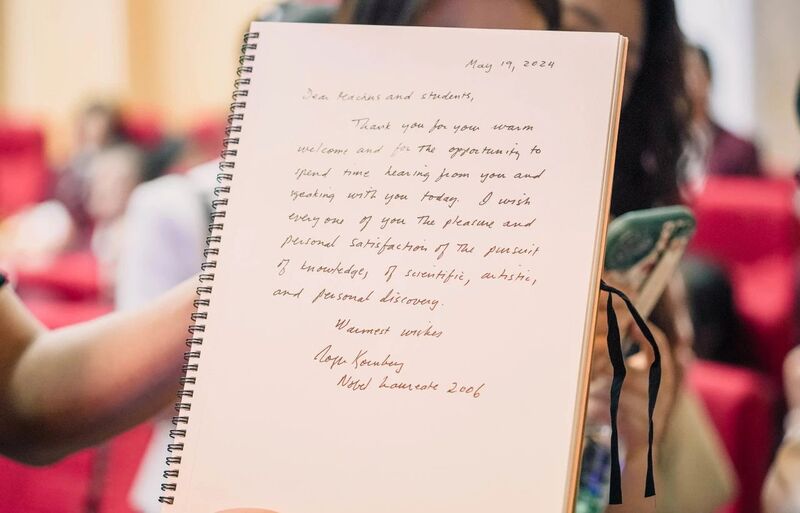 May 19, 2024
Dear teachers and students,
Thank you for your warm
welcome and for the opportunity to
spend time hearing from you and
speaking with you today. I wish
everyone of you the pleasure and
personal satisfaction of the pursuit
of knowledge, of scientific, artistic,
and personal discovery.
Warmest wishes
Roger Kornberg
Nobel Laureate 2006